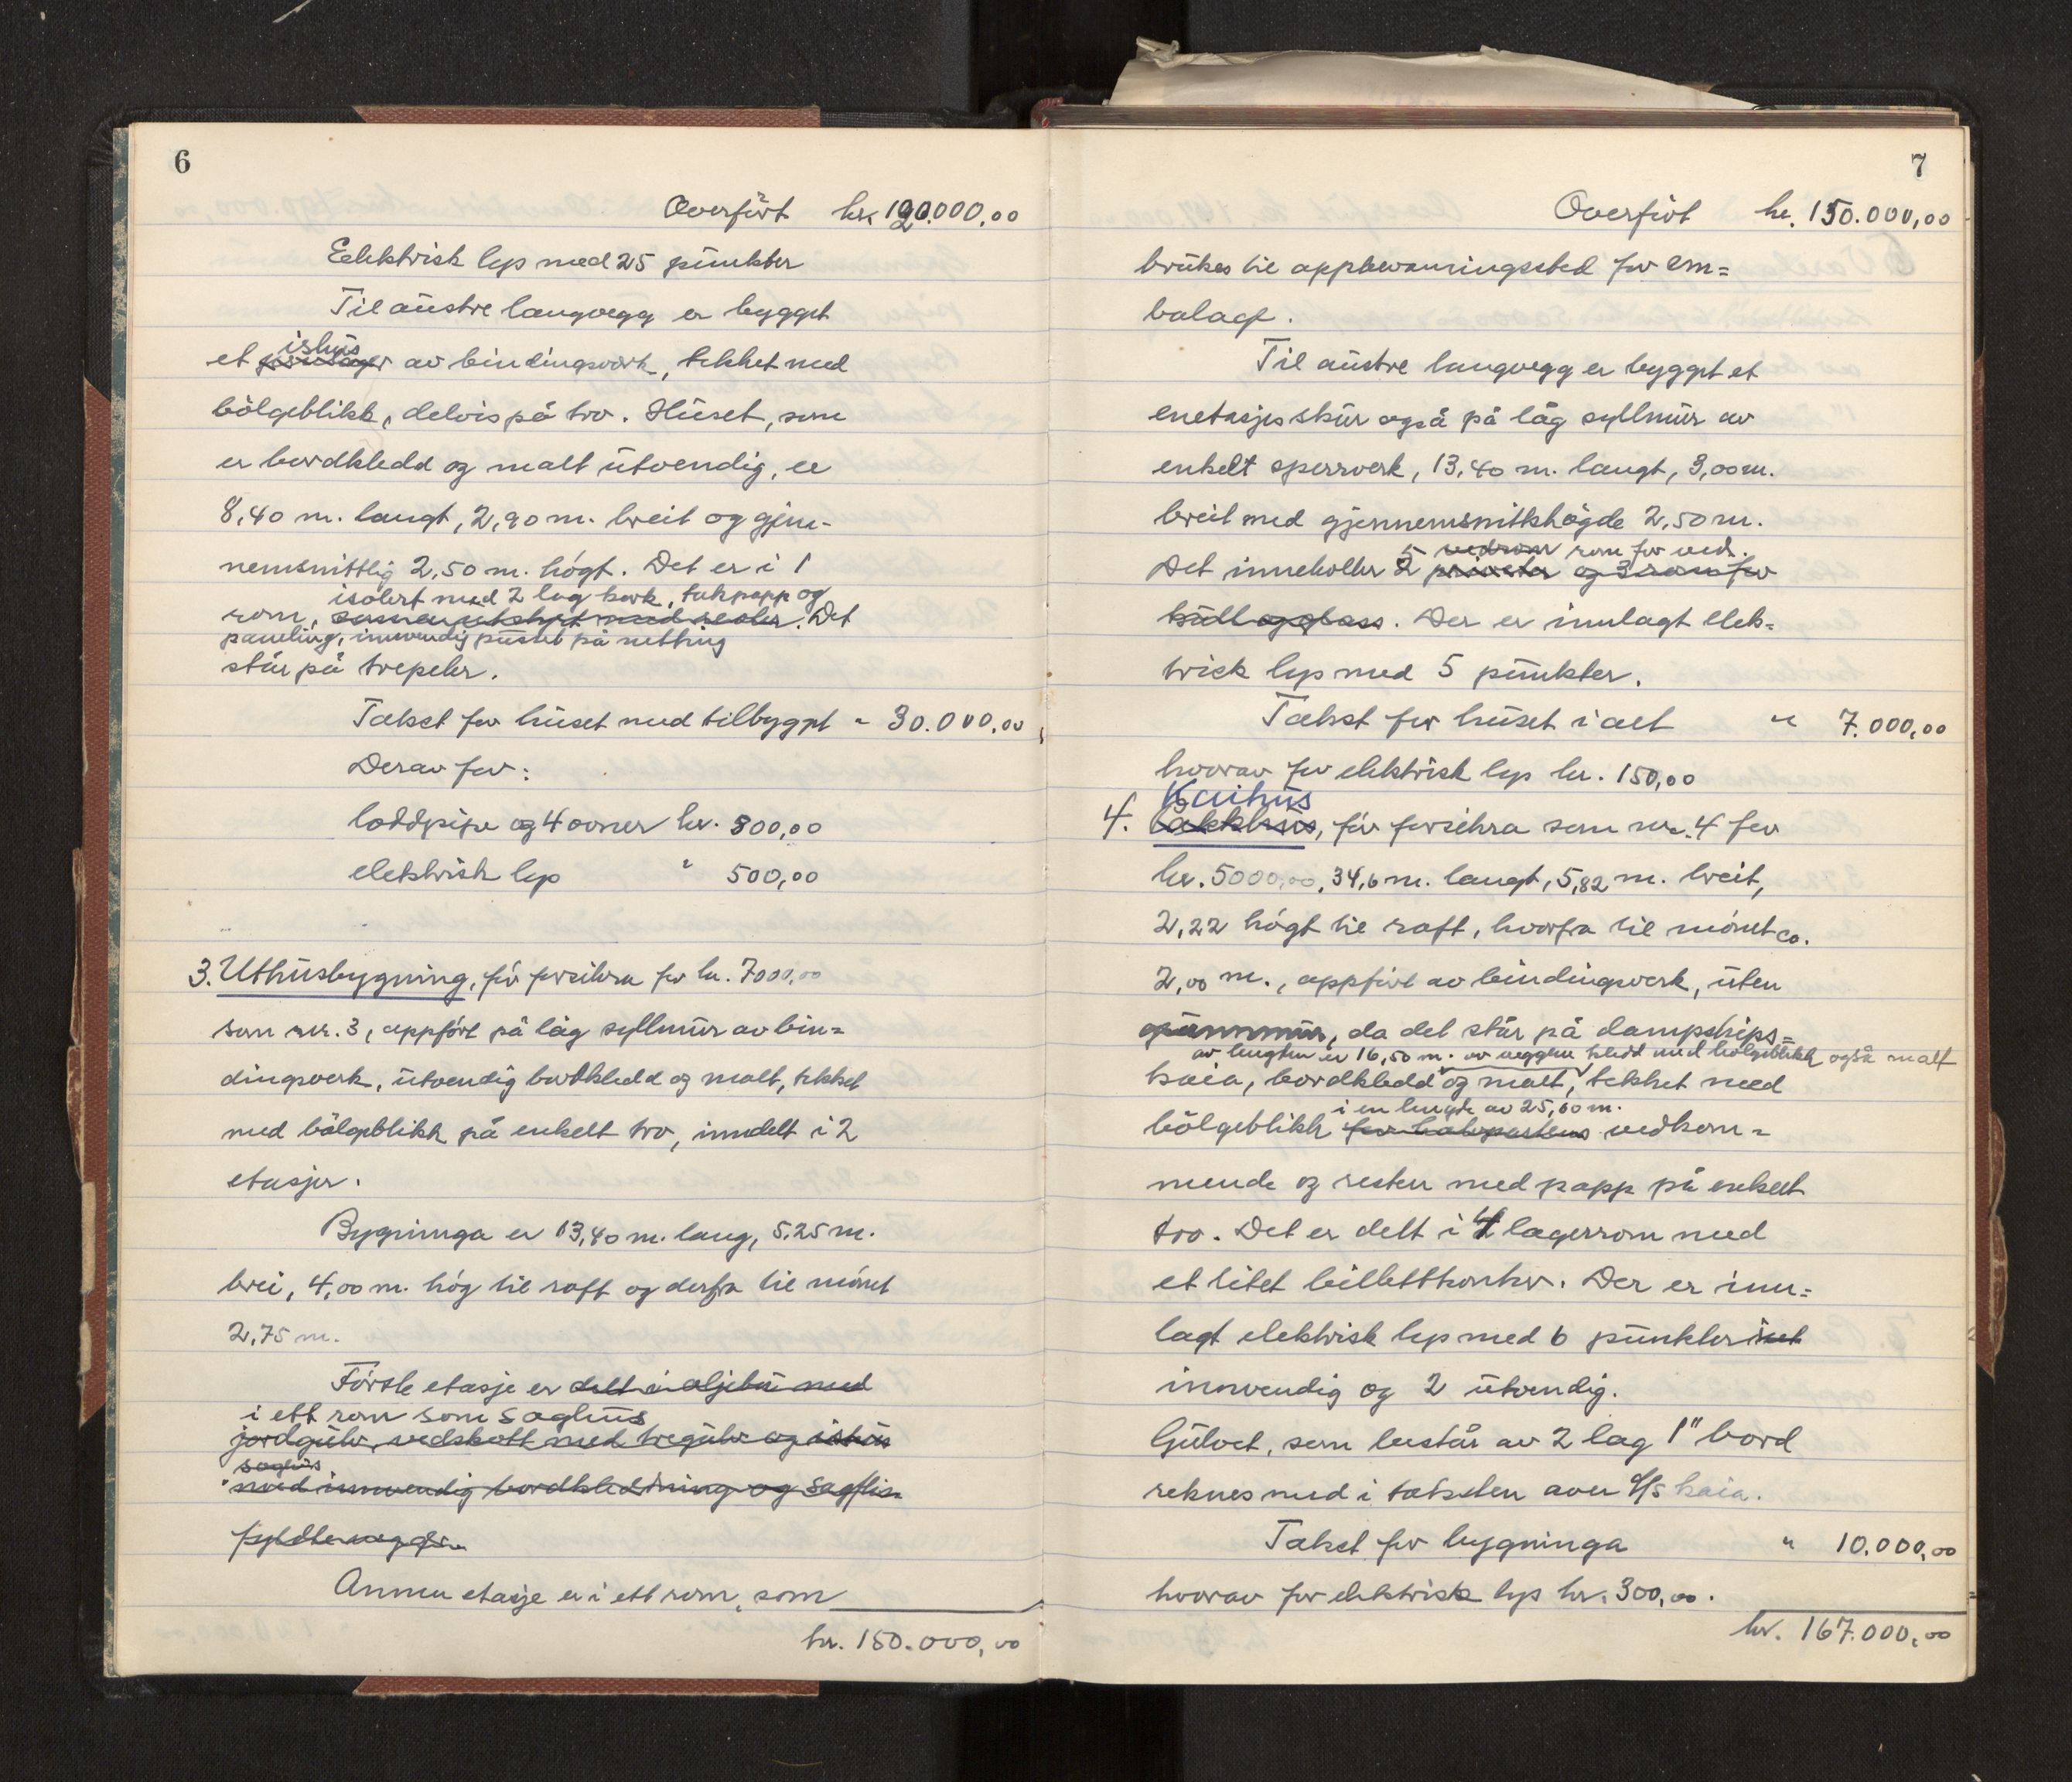 6
Overført kr. 120.000,00
Elektrisk lys med 25 punkter
Til austre langvegg er bygget
ishus
et av bindingsverk, tekket med
bölgeblikk, delvis på tro. Huset, som
er bordkledd og malt utvendig, er
8,40 m. langt, 2,90 m. breit og gjen-
nemsnittlig 2,50 m. högt. Det er i 1
isolert med 2 lag kork, takpapp og
rom, Det
paneling, innvendig pusset på netting
står på trepeler.
Takst for huset med tilbygget " 30.000,00
Derav for:
loddpipe og 4 ovner kr. 800,00
elektrisk lys " 500,00
3. Uthusbygning, för forsikra for kr. 7000,00
som nr. 3, oppfört på låg syllmur av bin=
dingsverk, utvendig bordkledd og malt, tekket
med bölgeblikk på enkelt tro, inndelt i 2
etasjer.
Bygninga er 13,40 m. lang, 5,25 m.
brei, 4,00 m. hög til raft og derfra til mönet
2,75 m.
Förste etasje er delt i oljebu med
i ett rom som saghus
jordgulv, vedskott med tregulv og ishus
saghus
med innvendig bordkledning og sagflis-
fyldte vegger.
Annen etasje er i ett rom, som
kr. 150.000,00
7
Overfört kr. 150.000,00
brukes til oppbevaringssted for em=
balage.
Til austre langvegg er bygget et
enetasjes skur også på låg syllmur av
enkelt sperrverk, 13,40 m. langt, 3,00 m.
breit med gjennemsnittshögde 2,50 m.
5 vedrom rom for ved.
Det inneholler 2 priveter og 3 rom for
kull og glass. Der er innlagt elek=
trisk lys med 5 punkter.
Takst for huset i alt " 7.000,00
hvorav for elektrisk lys kr. 150,00
Kaihus
4. Pakkhus, för forsikra som nr. 4 for
kr. 5000,00, 34,6 m. langt, 5,82 m. breit,
2,22 högt til raft, hvorfra til mönet ca.
2,00 m., oppfört av bindingsverk, uten
grunnmur, da det står på dampskips=
av lengden er 16,50 m. av veggene kledd med bölgeblikk også malt
kaia, bordkledd og malt, tekket med
i en lengde av 25,60 m.
bölgeblikk for halvpartens vedkom=
mende og resten med papp på enkelt
tro. Det er delt i 4 lagerrom med
et litet billettkontor. Der er inn=
lagt elektrisk lys med 6 punkter
innvendig og 2 utvendig.
Gulvet, som består av 2 lag 1" bord
reknes med i taksten over d/s kaia.
Takst for bygninga " 10.000,00
hvorav for elektrisk lys kr. 300,00.
kr. 167.000,00